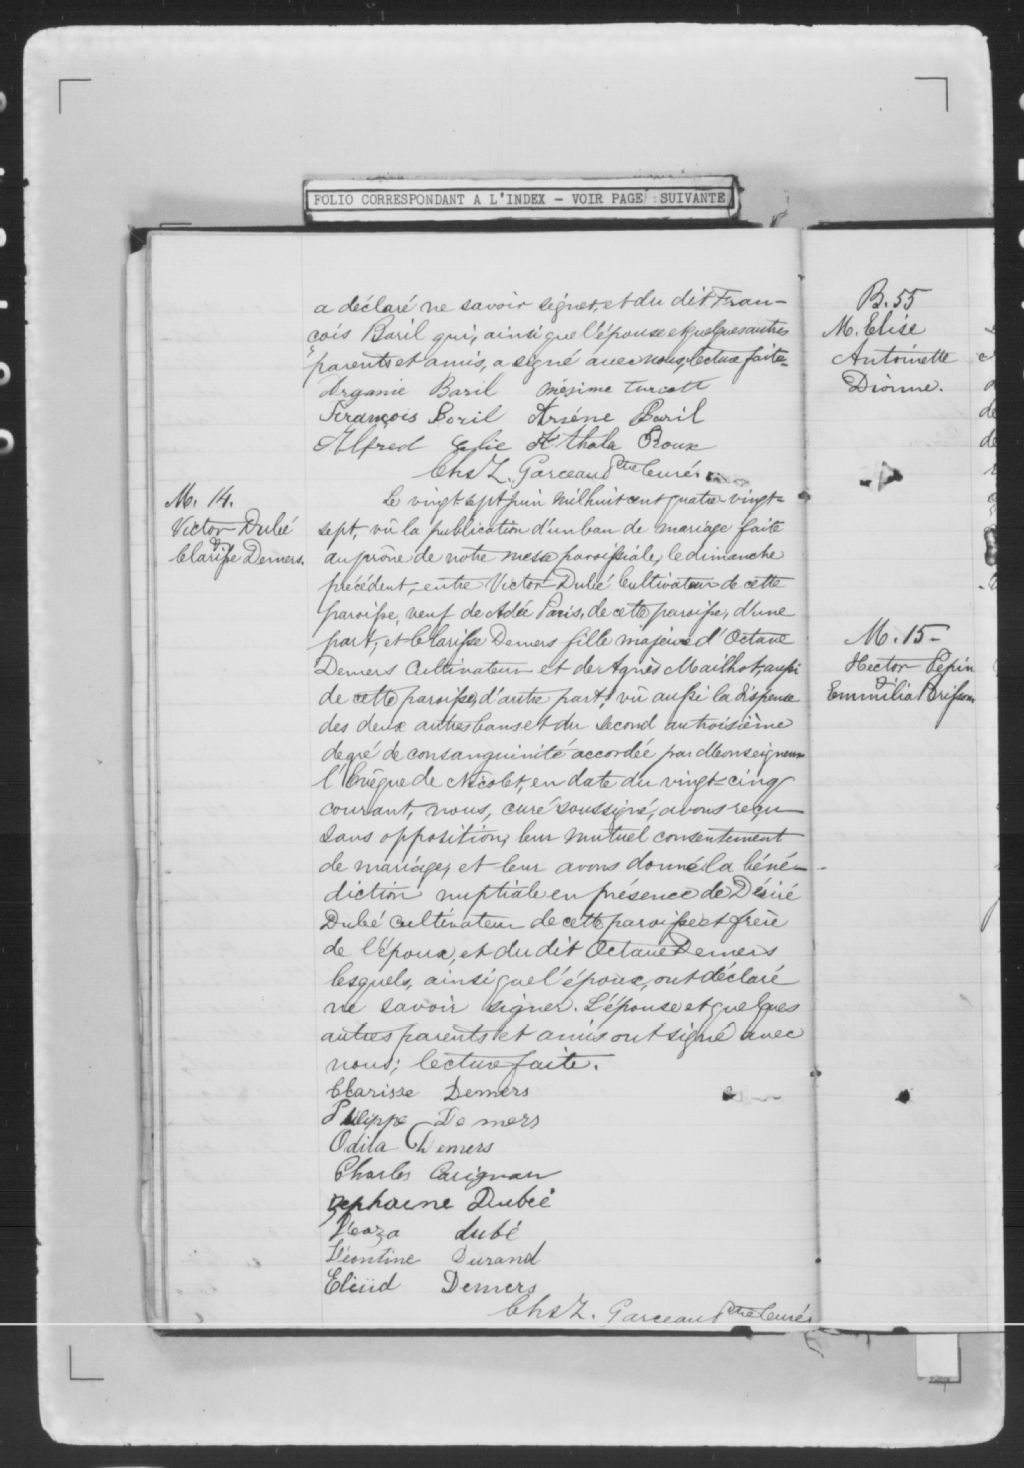 FOLIO CORRESPONDANT A L'INDEX - VOIR PAGE SUIVANTE
a déclaré ne savoir signer, et du dit Fran-
çois Baril qui, ainsi que l'épouse et quelques autres
parents et amis, a signé avec nous, lecture faite-
Baril Onésime Turcott
François Baril Arsène Baril
Alfred Roux
Chs Z. Garceau Ptre Curé
M. 14.
Victor Dubé
&
Clarisse Demers.
Le vingt-sept juin mil huit cent quatre-vingt-
sept, vû la publication d'un ban de mariage faite
au prône de notre messe paroissiale, le dimanche
précédent, entre Victor Dubé Cultivateur de cette
paroisse, veuf de Adée Paris, de cette paroisse, d'une
part; et Clarisse Demers fille majeure d'Octave
Demers Cultivateur et de Agnès Mailhot, aussi
de cette paroisse, d'autre part; vû aussi la dispense
des deux autres bans et du second au troisième
degré de consanguinité accordée par Monseigneur
l'Evêque de Nicolet, en date du vingt-cinq
courant, nous, curé soussigné, avons reçu
sans opposition, leur mutuel consentement
de mariage, et leur avons donné la béné-
diction nuptiale en présence de Désiré
Dubé Cultivateur de cette paroisse et frère
de l'époux, et du dit Octave Demers
lesquels, ainsi que l'époux, ont déclaré
ne savoir signer. L'épouse et quelques
autres parents et amis ont signé avec
nous; lecture faite.
Clarisse Demers
Philippe Demers
Odila Demers
Charles Carignan
Dubé
dubé
Léontine Durand
Demers
Chs Z. Garceau Ptre Curé
B. 55
M. Elise
Antoinette
Dionne.
M. 15-
Hector Pepin
&